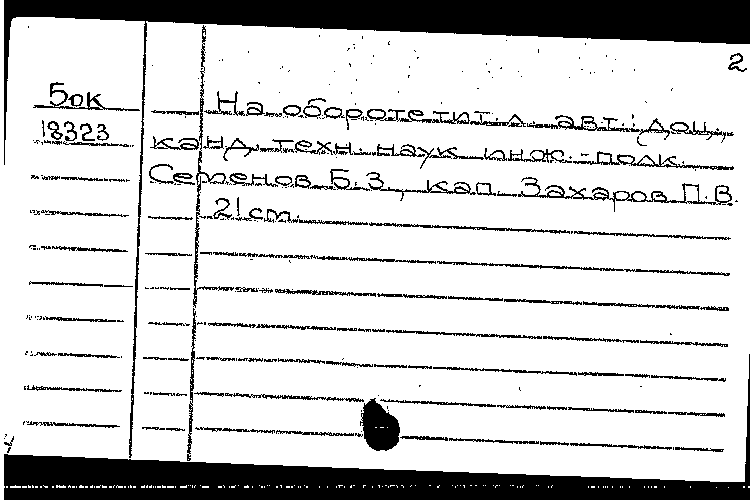 2
5ок
18323
На обороте тит. л. авт.: доц.,
канд. техн. наук инж.-полк.
Семенов Б.З., кап. Захаров П.В.
21 cm.